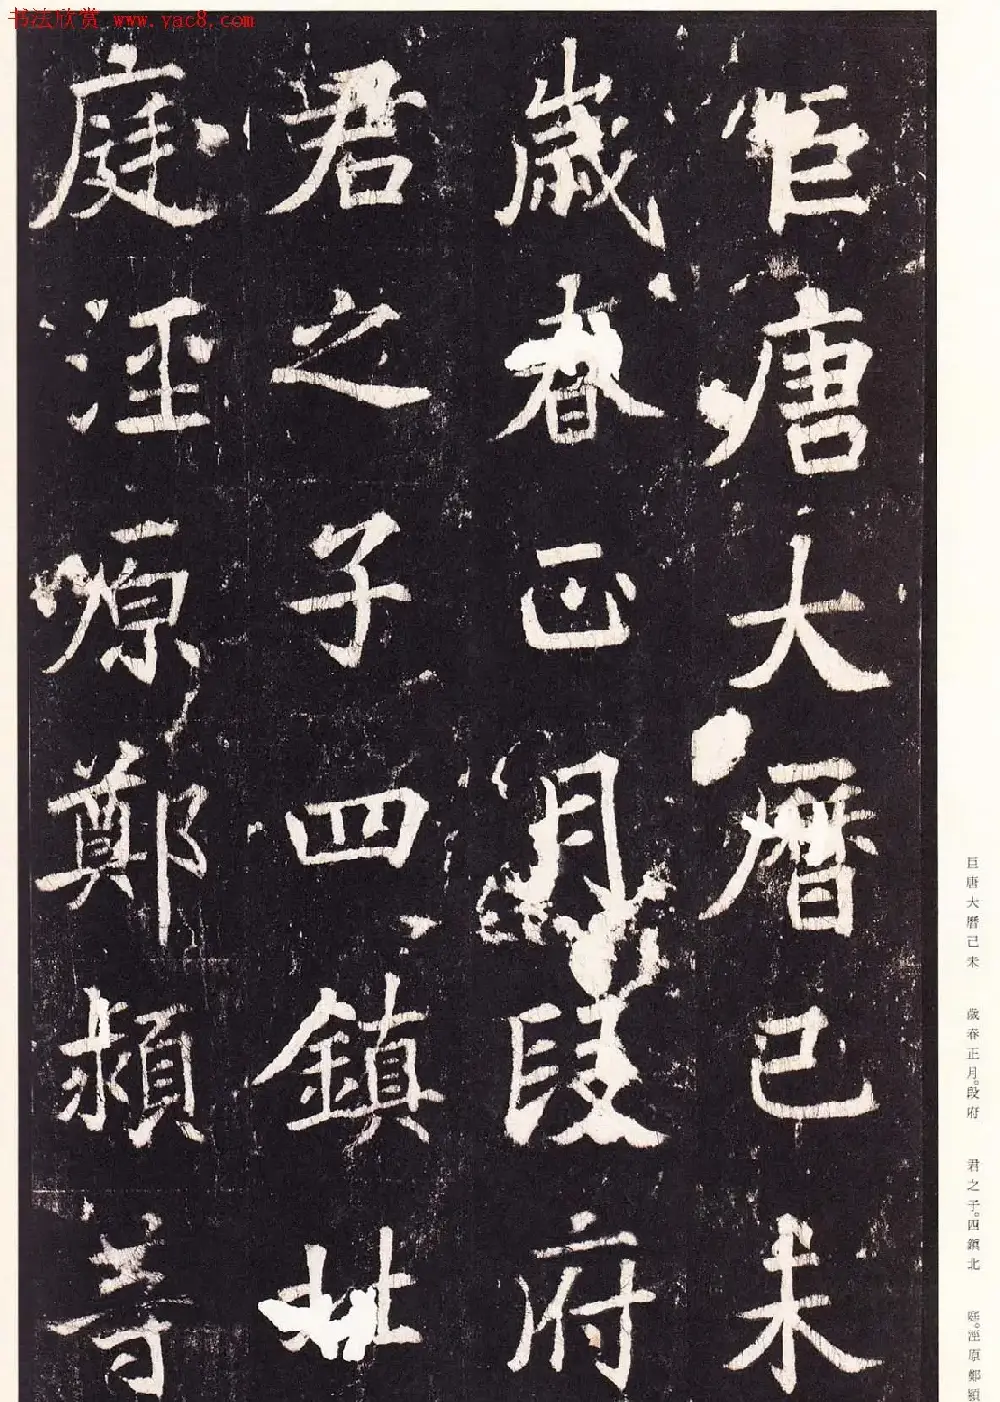 书法欣赏 www.yac8.com
巨唐大曆己未
歲春正月段府
君之子四鎮北
庭涇原鄭潁等
巨唐大曆己未 歲春正月。段府 君之子。四鎮北 庭。涇原鄭潁